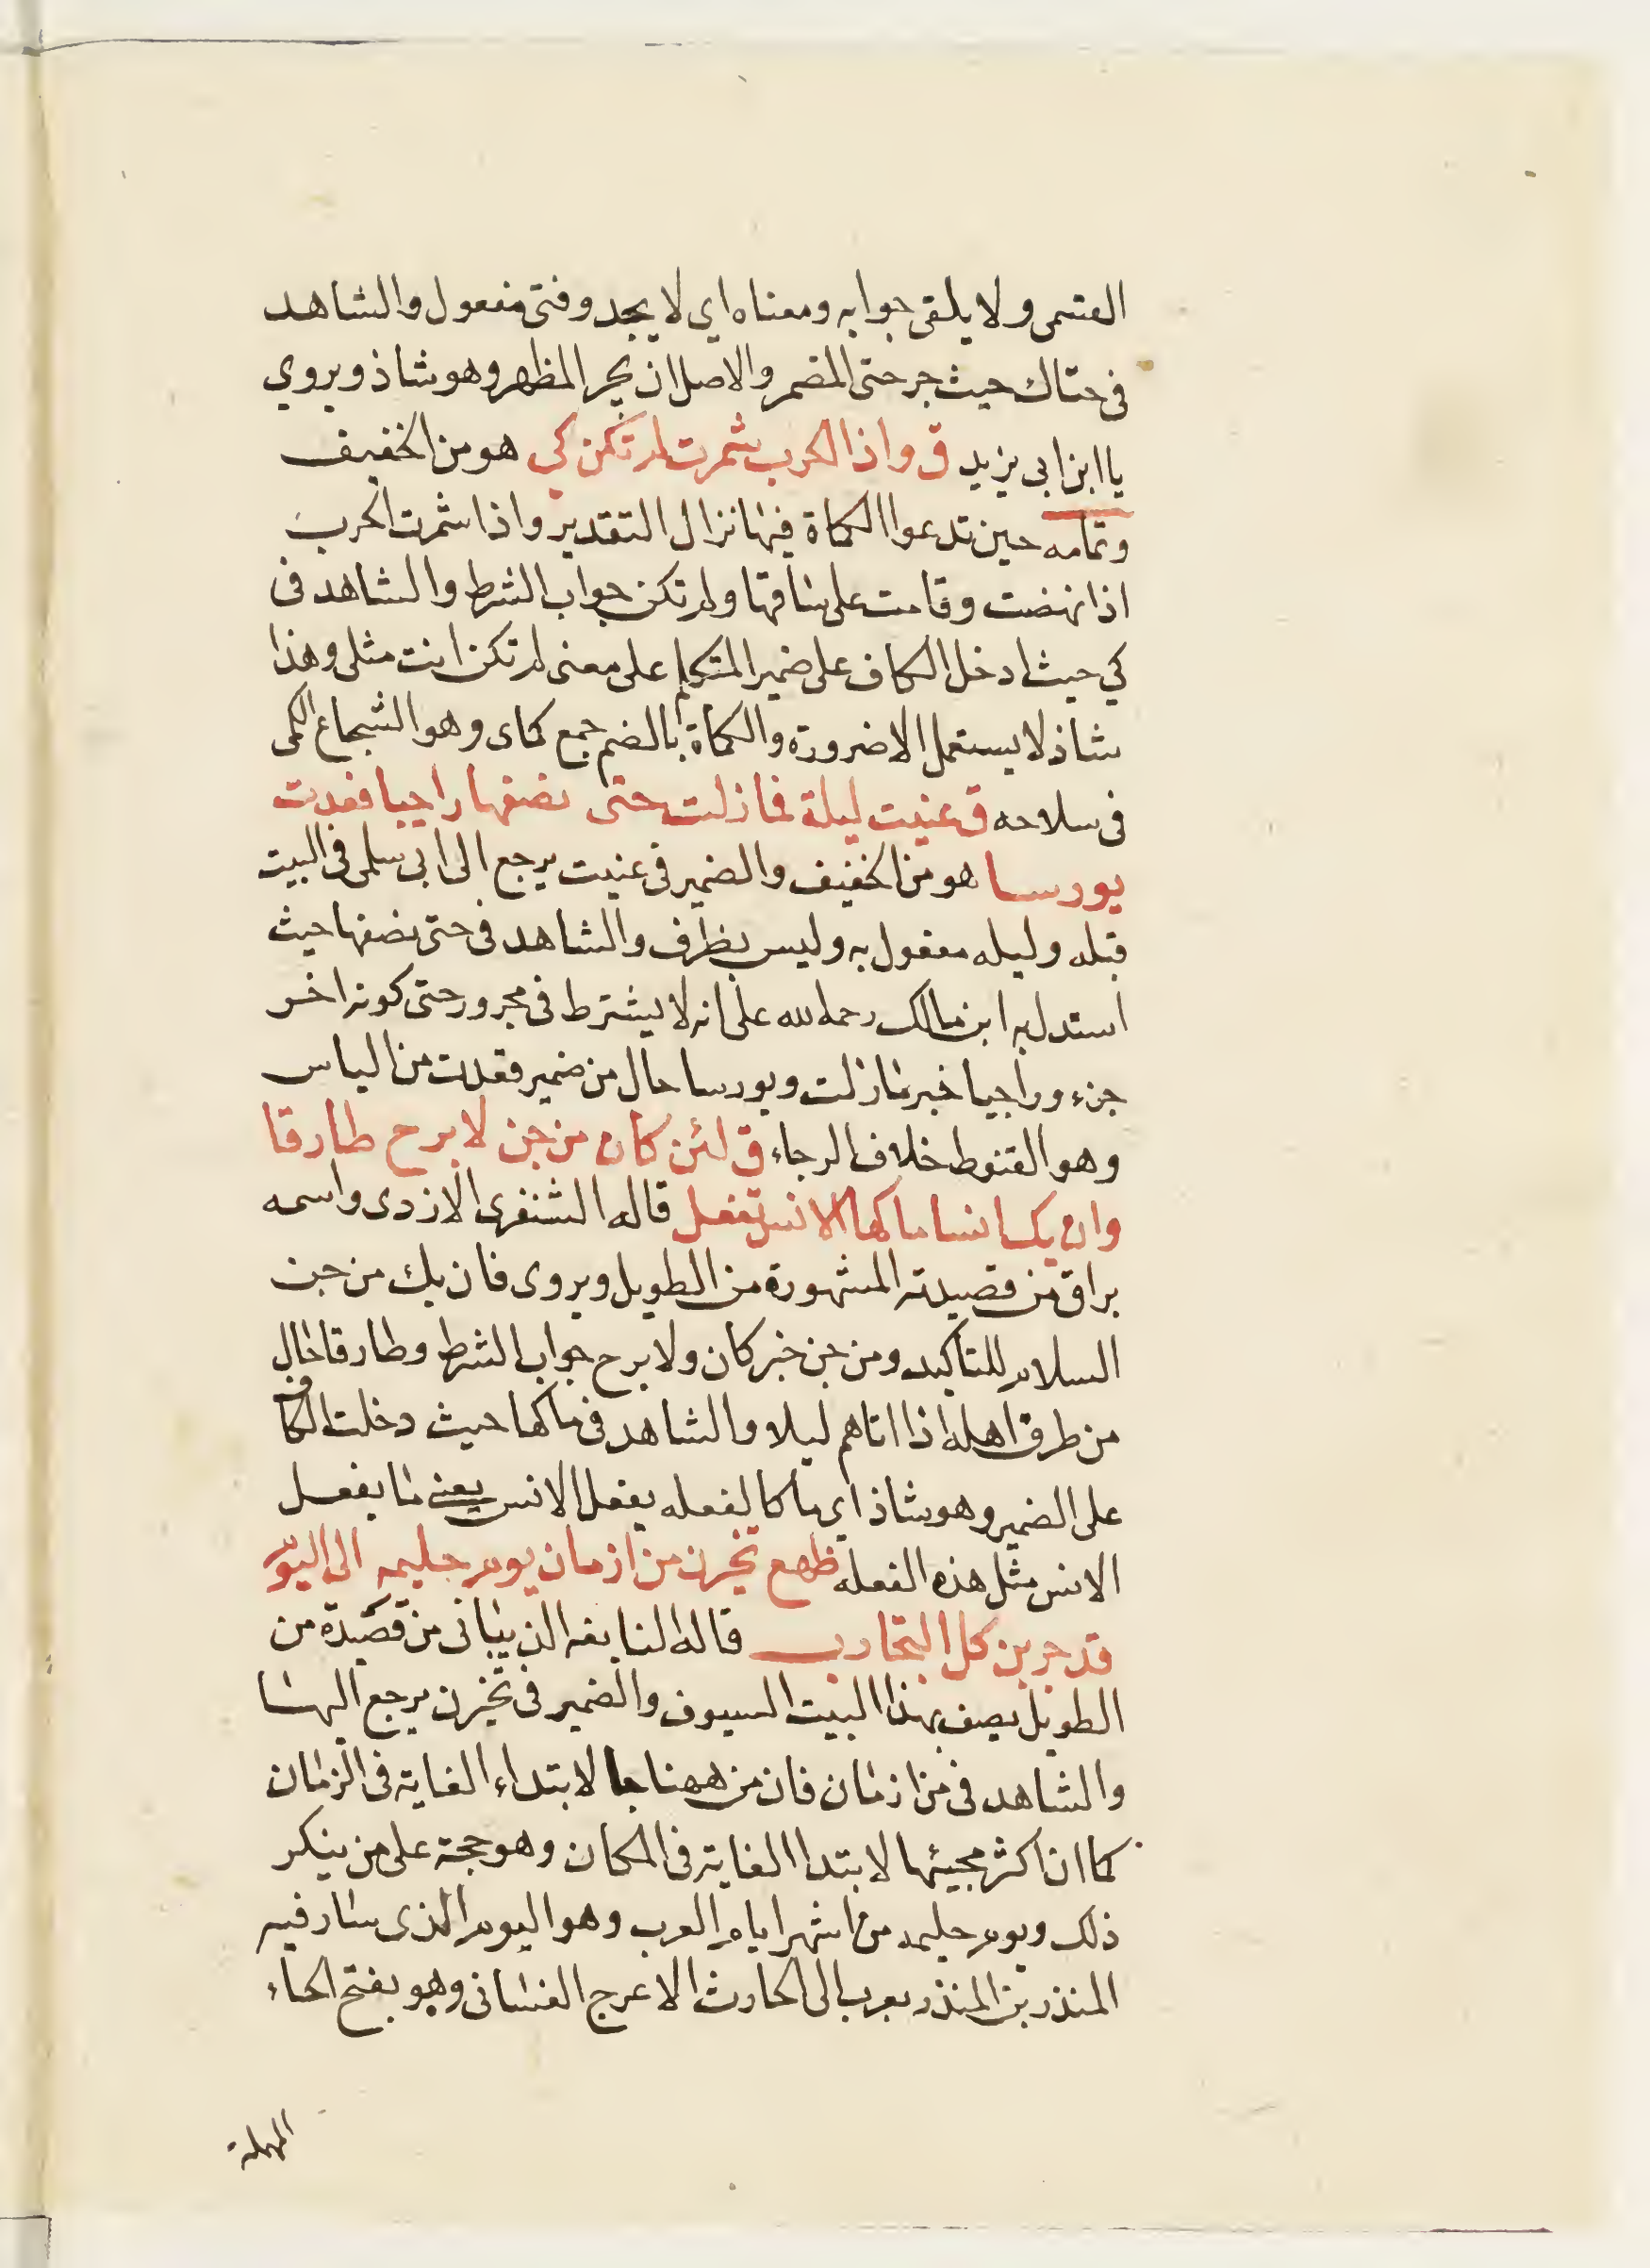 القسمى ولا يلقى جوابه ومعناه اي لا يجد وفتى مفعول والشاهد
فى حتاك حيث جر حتى المضمر والاصل ان يجر المظهر وهو شاذ ويروي
يا ابن ابى يزيد ق واذا الحرب شمرت لم تكن كي هو من الخفيف
وتمامه حين تدعوا الكماة فيها نزال التقدير واذا شمرت الحرب
اذا نهضت وقامت على ساقها ولم تكن جواب الشرط والشاهد فى
كي حيث ادخل الكاف على ضمير المتكلم على معنى لم تكن انت مثلى وهذا
شاذ لا يستعمل الا ضرورة والكماة بالضم جمع كماى وهو الشجاع الكمى
فى سلاحه ق عنيت ليلة فما زلت حتى نصفها راجيا فعدت
يورسا هو من الخفيف والضمير فى عنيت يرجع الى ابى سلمى فى البيت
قبله وليله مفعول به وليس بظرف والشاهد فى حتى نصفها حيث
استدل به ابن مالك رحمه الله على انه لا يشترط فى مجرور حتى كونه اخر
جزء وراجيا خبر مازلت ويورسا حال من ضمير فقدت من الياس
وهو القنوط خلاف الرجاء ق لئن كان من جن لا برح طارقا
وان يك انسا ماكها الانس تفعل قاله الشنفرى الازدى واسمه
براق من قصيدته المشهورة من الطويل ويروى فان يك من جن
السلام للتاكيد ومن جن خبر كان ولا برح جواب الشرط وطارقا حال
من طرق اهله اذا اتاهم ليلا والشاهد فى ماكها حيث دخلت الكاف
على الضمير وهو شاذ اي ما كالفعله يفعل الانس يعنے ما يفعل
الانس مثل هذه الفعله ظهع تخيرن من ازمان يوم حليمه الى اليوم
قد جربن كل التجارب قاله النابغه الذبيانى من قصيدة من
الطويل يصف بهذا البيت السيوف والضمير فى تخيرن يرجع اليها
والشاهد فى من ازمان فان من ههنا جا لابتداء الغاية فى الزمان
كما ان اكثر مجيئها لابتدا الغاية فى المكان وهو حجة على من ينكر
ذلك ويوم حليمه من اشهر ايام العرب وهو اليوم الذى سار فيه
المنذر بن المنذر بعرب الى الحارث الاعرج الغسانى وهو بفتح الحاء
المهملة